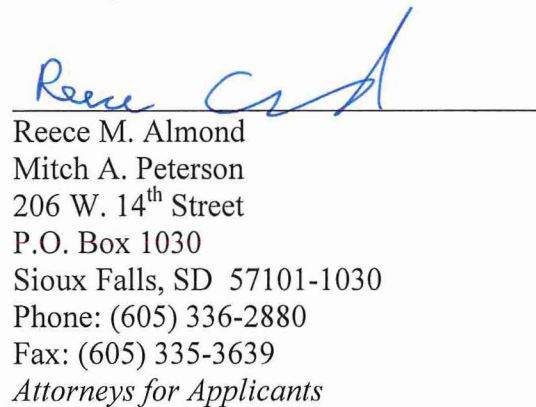 Reece
Reece M. Almond
Mitch A. Peterson
206 W. 14th Street
P.O. Box 1030
Sioux Falls, SD  57101-1030
Phone: (605) 336-2880
Fax: (605) 335-3639
Attorneys for Applicants